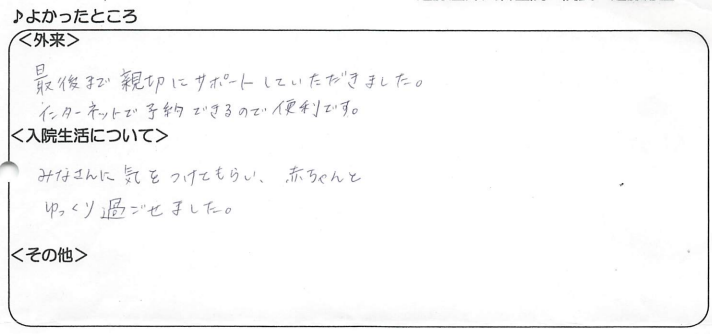 ♪よかったところ
＜外来＞
最後まで親切にサポートしていただきました。
インターネットで予約できるので便利です。
＜入院生活について＞
みなさんに気をつけてもらい、赤ちゃんと
ゆっくり過ごせました。
＜その他＞